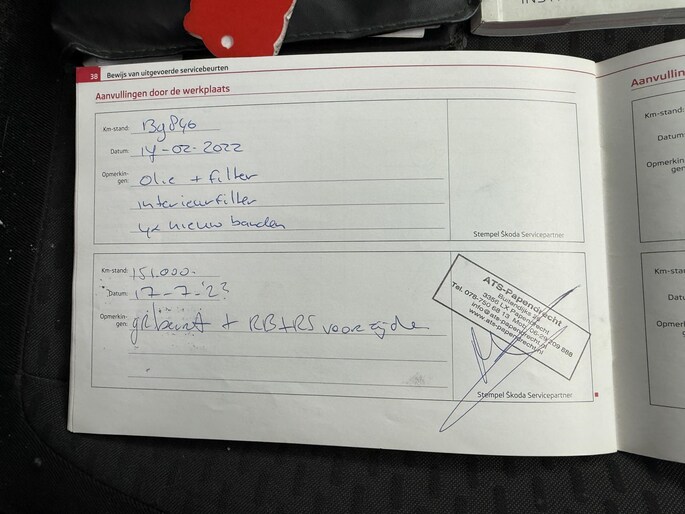 INST
38 Bewijs van uitgevoerde servicebeurten
Aanvullingen door de werkplaats
Km-stand: 139846
Datum: 14-02-2022
Opmerkin-
gen: olie + filter
interieurfilter
4x nieuw banden
Stempel Škoda Servicepartner
Km-stand: 151.000.-
Datum: 17-7-'23
Opmerkin-
gen: gr. beurt + RB+RS voorzijde
ATS-Papendrecht
Buitendijks 29
3356 LX Papendrecht
Tel. 078-750 68 13 Mob. 06-29 209 868
info@ats-papendrecht.nl
www.ats-papendrecht.nl
Stempel Škoda Servicepartner
Aanvullin
Km-stand:
Datum:
Opmerkin-
gen
Km-stand:
Datum:
Opmerkin-
gen